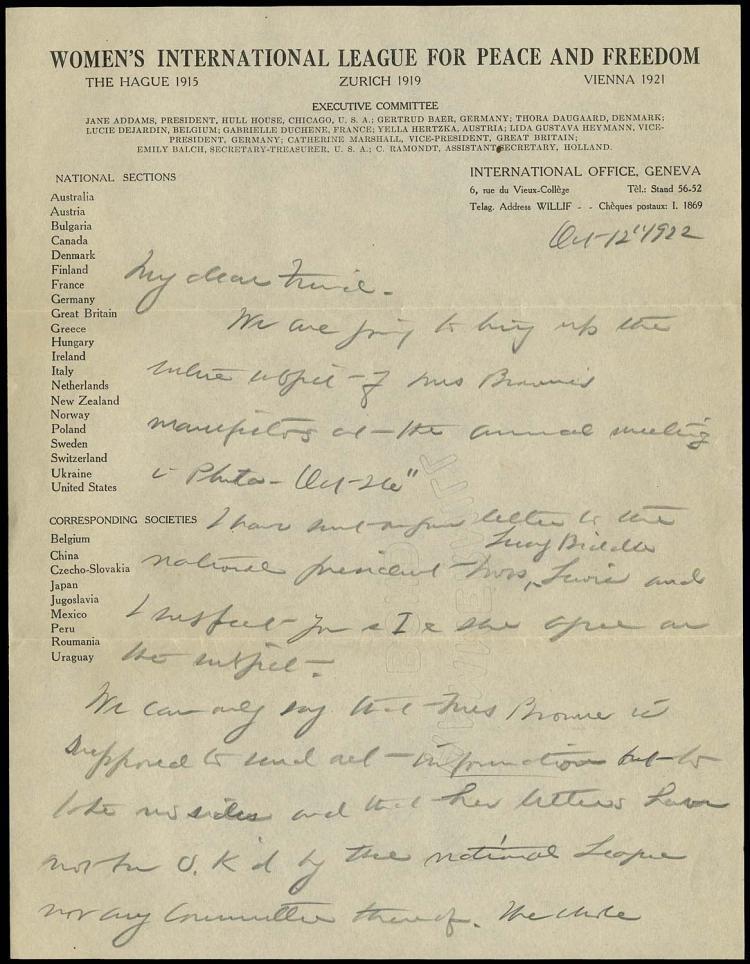 WOMEN'S INTERNATIONAL LEAGUE FOR PEACE AND FREEDOM
THE HAGUE 1915 ZURICH 1919 VIENNA 1921
EXECUTIVE COMMITTEE
JANE ADDAMS, PRESIDENT, HULL HOUSE, CHICAGO, U. S. A.; GERTRUD BAER, GERMANY; THORA DAUGAARD, DENMARK;
LUCIE DEJARDIN, BELGIUM; GABRIELLE DUCHENE, FRANCE; YELLA HERTZKA, AUSTRIA; LIDA GUSTAVA HEYMANN, VICE-
PRESIDENT, GERMANY; CATHERINE MARSHALL, VICE-PRESIDENT, GREAT BRITAIN;
EMILY BALCH, SECRETARY-TREASURER, U. S. A.; C. RAMONDT, ASSISTANT SECRETARY, HOLLAND.
INTERNATIONAL OFFICE, GENEVA
6, rue du Vieux-Collège Tèl.: Stand 56-52
Telag. Address WILLIF - - Chèques postaux: I. 1869
NATIONAL SECTIONS
Australia
Austria
Bulgaria
Canada
Denmark
Finland
France
Germany
Great Britain
Greece
Hungary
Ireland
Italy
Netherlands
New Zealand
Norway
Poland
Sweden
Switzerland
Ukraine
United States
CORRESPONDING SOCIETIES
Belgium
China
Czecho-Slovakia
Japan
Jugoslavia
Mexico
Peru
Roumania
Uraguay
Oct-12" 1922
My dear Friend -
We are going to bring up the
whole subject - of Mrs Browne's
manifestos at - the annual meeting
in Phila - Oct -
I have sent your letter to the
national president - Mrs, Lucy Biddle Lewis and
I suspect you & I & she agree on
the subject -
We can only say that Mrs Browne is
supposed to send out - information but - to
take no sides and that her letters have
not been O. K'd by the national League
nor any Committee thereof. The whole